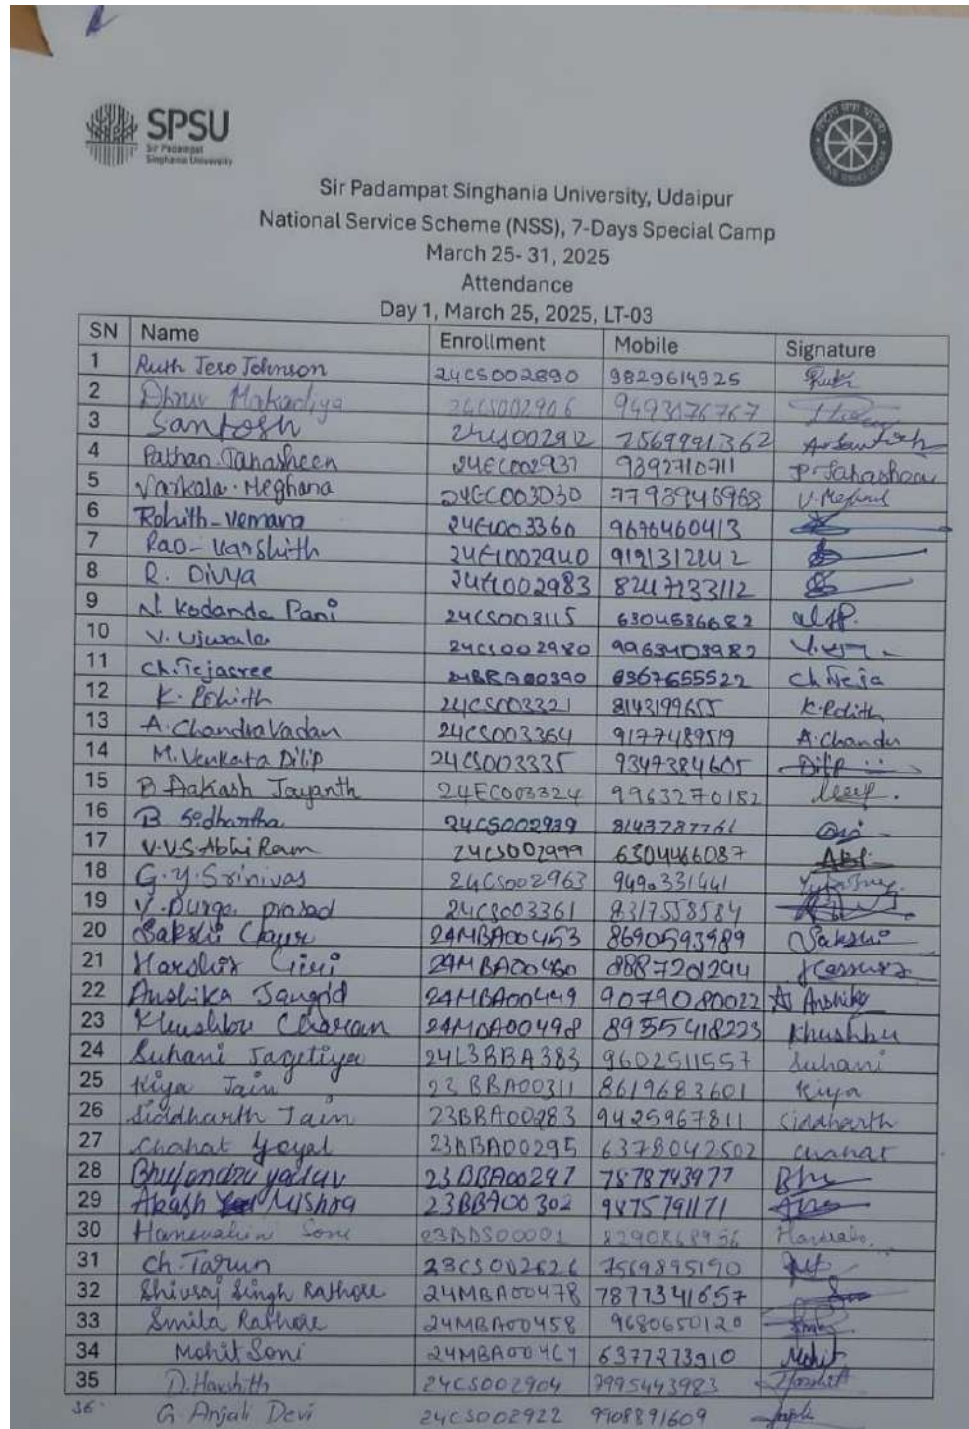 SPSU
Sir Padampat
Singhania University
Sir Padampat Singhania University, Udaipur
National Service Scheme (NSS), 7-Days Special Camp
March 25- 31, 2025
Attendance
Day 1, March 25, 2025, LT-03
SN Name Enrollment Mobile Signature
1 Ruth Jeso Johnson 24CS002890 9829614925 Ruth
2 Dhruv Makadiya 24CS002906 9493176767
3 Santosh 24CS002912 7569991362 A. Santosh
4 Pathan.Tahasheen 24EC002937 9392710711 P. Tahasheen
5 Varkala.Meghana 24EC003030 7793946968
6 Rohith-Vemara 9676460413
7 Rao-Varshith 9191312242
8 R. Divya 8247133112
9 N. Kodanda Pani 24CS003115 6304536682
10 V. Ujwala 24CS002980 9963403982
11 Ch.Tejasree 24BBA00390 8367655522 Ch Teja
12 K. Rohith 24CS003321 8143199655 K. Rohith
13 A.ChandraVadan 24CS003364 9177489519 A.Chandu
14 M.Venkata Dilip 24CS003335 9347384605 Dilip
15 B Aakash Jayanth 24EC003324 9963270182
16 B Sidhartha 24CS002939 8143787761
17 V.V.S.Abhi Ram 24CS002999 6304466087 Abi
18 G.Y.Srinivas 24CS002963 9490331441
19 V.Durga prasad 24CS003361 8317558584
20 Sakshi 24MBA00453 8690593989 Sakshi
21 Harshit Giri 24MBA00460 8887201294
22 Anshika Jangid 24MBA00449 9079080022 Anshika
23 Khushbu Charan 24MBA00498 8955418223 Khushbu
24 Suhani Jagetiya 24L3BBA383 9602511557 Suhani
25 Kiya Jain 23BBA00311 8619683601 Kiya
26 Siddharth Jain 23BBA00283 9425967811 Siddharth
27 Chahat Goyal 23BBA00295 6378042502 Chahat
28 Bhupendra yadav 23BBA00297 7878743977
29 Akash Mishra 23BBA00302 9875791171
30 Soni 23BDS00001
31 Ch. Tarun 23CS002626 7569895190
32 Shivraj Singh Rathore 24MBA00478 7877341657
33 Smila Rathore 24MBA00458 9680650120
34 Mohit Soni 24MBA00467 6377273910 Mohit
35 D.Harshith 24CS002904 7995443983 Harshith
36. G Anjali Devi 24CS002922 9908891609